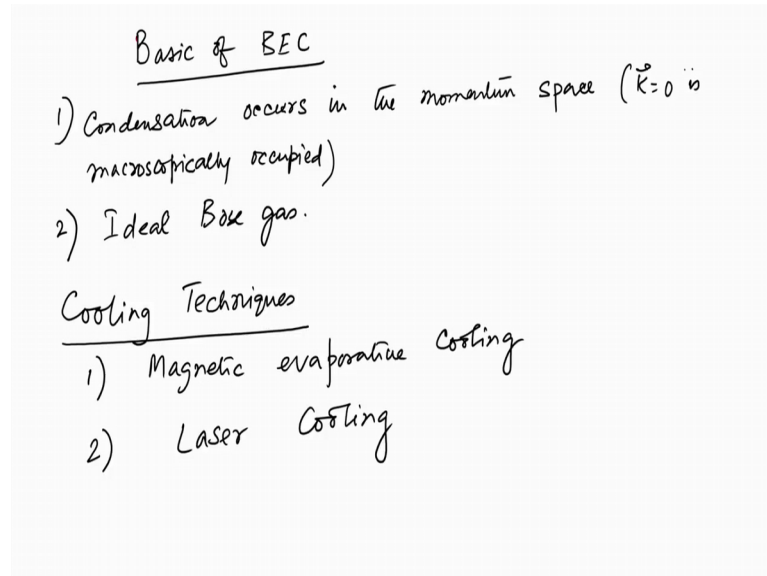 Basic of BEC
1) Condensation occurs in the momentum space (k⃗=0 is
macroscopically occupied)
2) Ideal Bose gas.
Cooling Techniques
1) Magnetic evaporative cooling
2) Laser Cooling